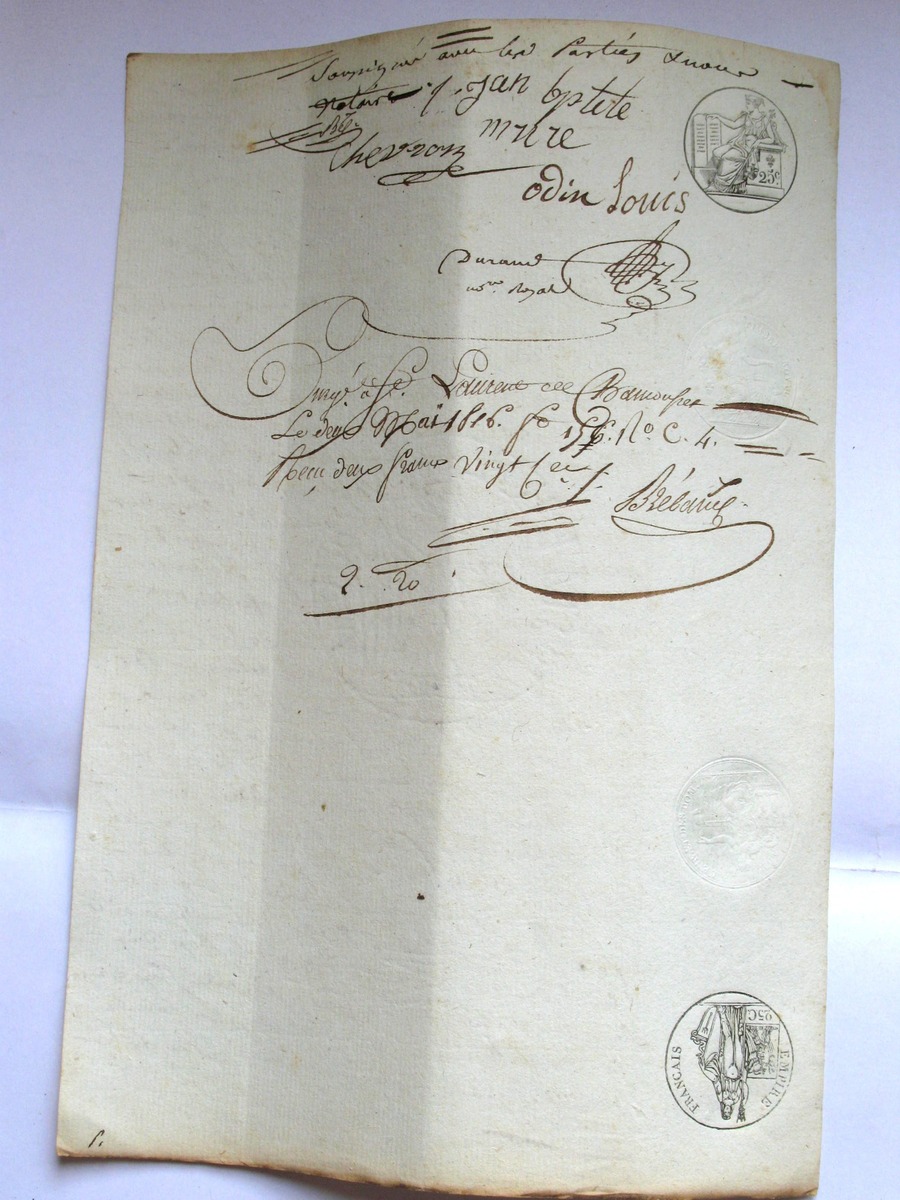 Soussigné avec les Parties & nous
notaire ./. jan bptete
mure
Chevron
odin Louis
25c
Durand
Royal
à St. Laurent de Chamousset
Le deux Mai 1816. fo 156. Ro C. 4.
Reçu deux francs Vingt Ces
2. 20
25C
EMPIRE FRANÇAIS